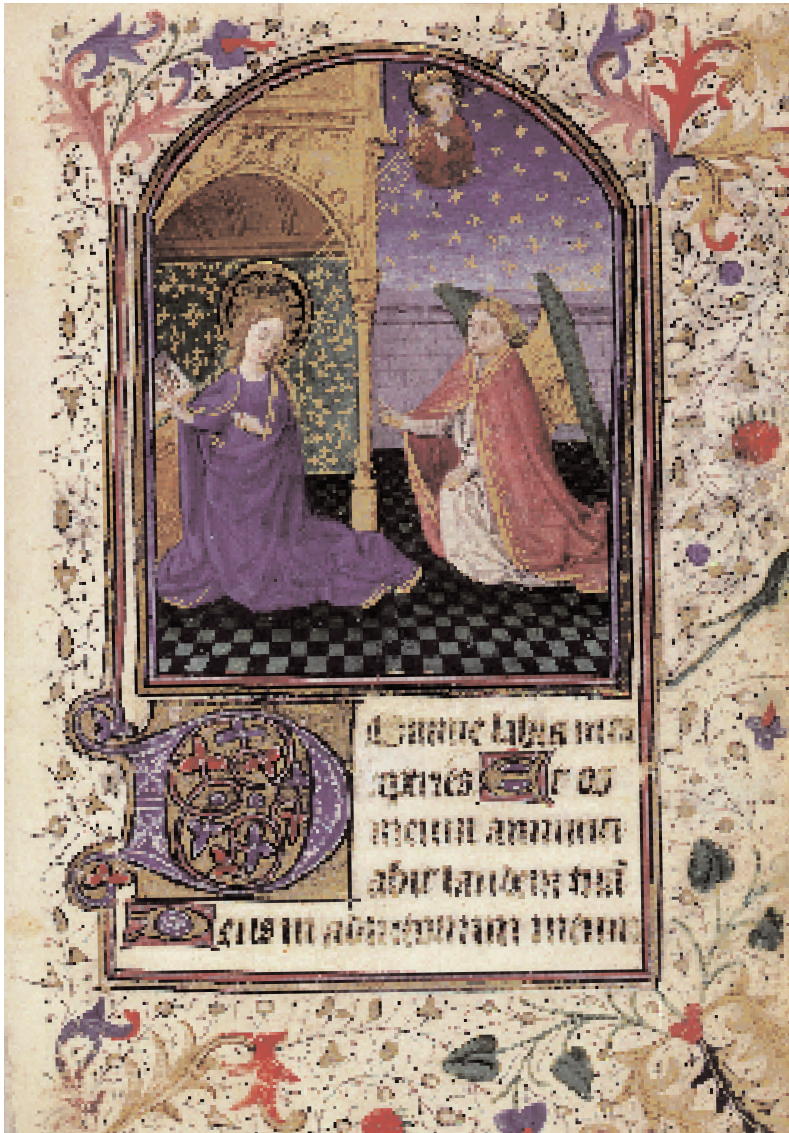 Domine labia mea
aperies Et os
meum annunci
abit laudem tuā
Deus in adiutorium meum